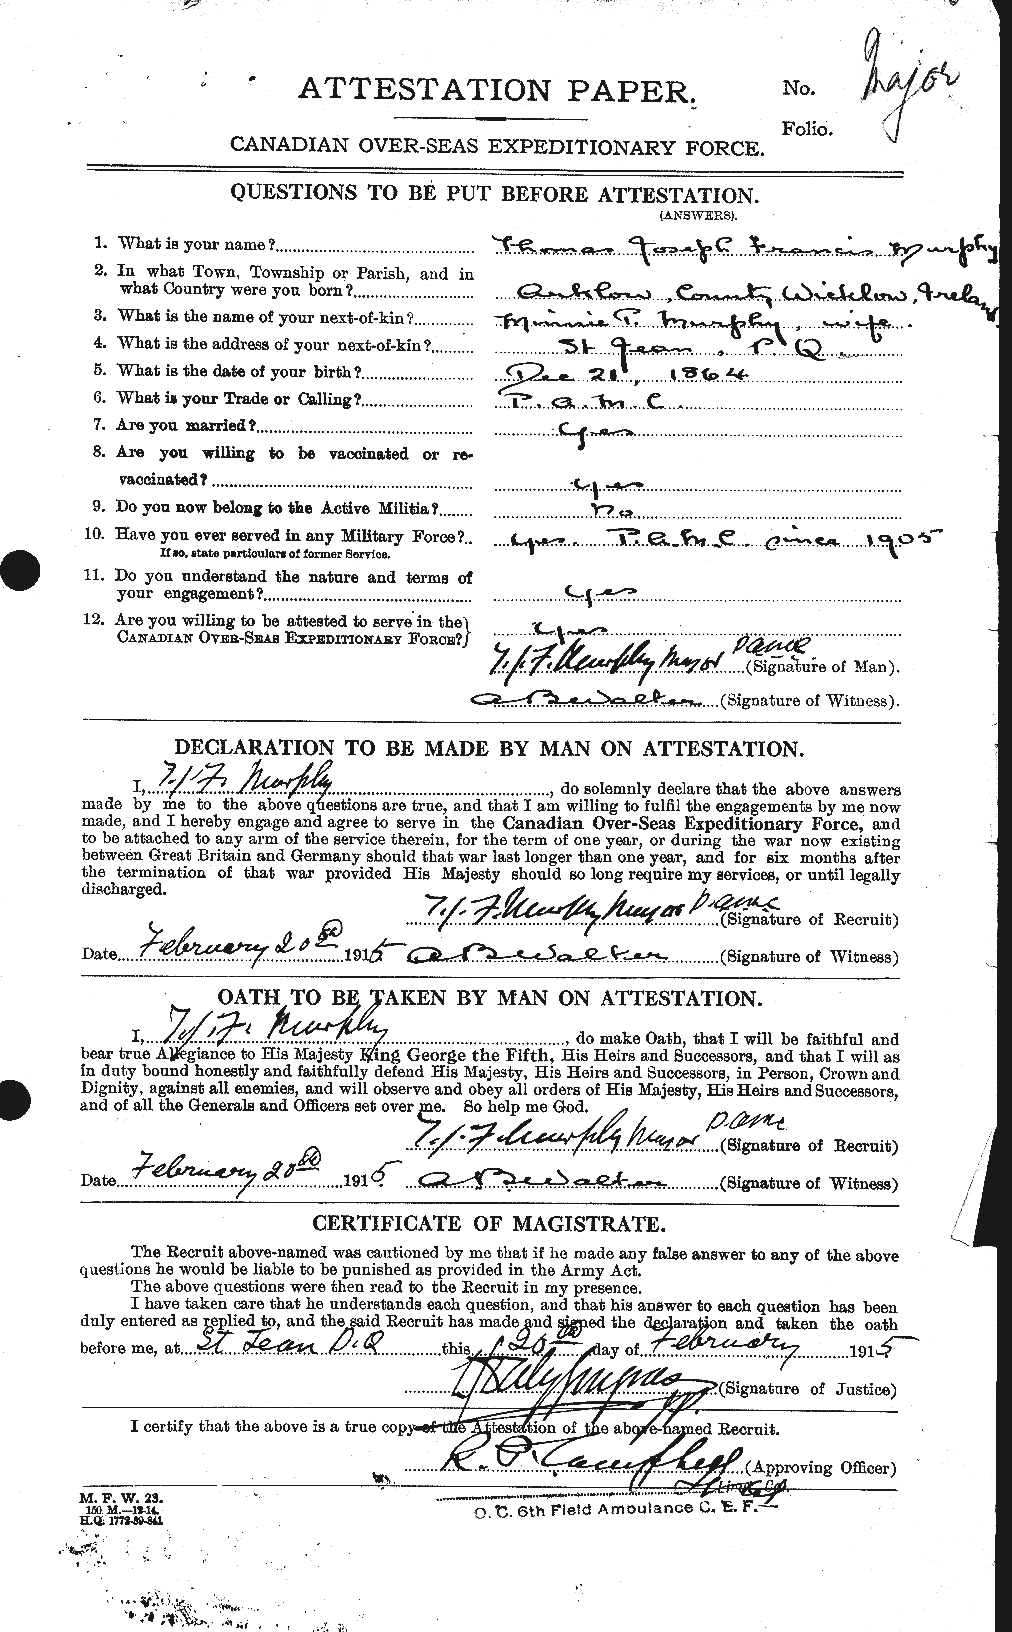 Major
ATTESTATION PAPER.
No.
Folio.
CANADIAN OVER-SEAS EXPEDITIONARY FORCE.
QUESTIONS TO BE PUT BEFORE ATTESTATION.
(ANSWERS).
1. What is your name? Thomas Joseph Francis Murphy
2. In what Town, Township or Parish, and in
what Country were you born? Arklow, County Wicklow, Ireland
3. What is the name of your next-of-kin? Minnie T. Murphy, wife.
4. What is the address of your next-of-kin? St Jean, P.Q.
5. What is the date of your birth? Dec 21, 1864
6. What is your Trade or Calling? P.A.M.C.
7. Are you married? Yes
8. Are you willing to be vaccinated or re-
vaccinated? Yes
9. Do you now belong to the Active Militia? No
10. Have you ever served in any Military Force? Yes. P.A.M.C. since 1905
If so, state particulars of former Service.
11. Do you understand the nature and terms of
your engagement? Yes
12. Are you willing to be attested to serve in the
CANADIAN OVER-SEAS EXPEDITIONARY FORCE? Yes
T.J.F. Murphy Major PAMC (Signature of Man).
A B Walter (Signature of Witness).
DECLARATION TO BE MADE BY MAN ON ATTESTATION.
I, T.J.F. Murphy, do solemnly declare that the above answers
made by me to the above questions are true, and that I am willing to fulfil the engagements by me now
made, and I hereby engage and agree to serve in the Canadian Over-Seas Expeditionary Force, and
to be attached to any arm of the service therein, for the term of one year, or during the war now existing
between Great Britain and Germany should that war last longer than one year, and for six months after
the termination of that war provided His Majesty should so long require my services, or until legally
discharged.
T.J.F. Murphy Major PAMC (Signature of Recruit)
Date February 20th 1915 A B Walter (Signature of Witness)
OATH TO BE TAKEN BY MAN ON ATTESTATION.
I, T.J.F. Murphy, do make Oath, that I will be faithful and
bear true Allegiance to His Majesty King George the Fifth, His Heirs and Successors, and that I will as
in duty bound honestly and faithfully defend His Majesty, His Heirs and Successors, in Person, Crown and
Dignity, against all enemies, and will observe and obey all orders of His Majesty, His Heirs and Successors,
and of all the Generals and Officers set over me. So help me God.
T.J.F. Murphy Major PAMC (Signature of Recruit)
Date February 20th 1915 A B Walter (Signature of Witness)
CERTIFICATE OF MAGISTRATE.
The Recruit above-named was cautioned by me that if he made any false answer to any of the above
questions he would be liable to be punished as provided in the Army Act.
The above questions were then read to the Recruit in my presence.
I have taken care that he understands each question, and that his answer to each question has been
duly entered as replied to, and the said Recruit has made and signed the declaration and taken the oath
before me, at St Jean P.Q this 20th day of February 1915
(Signature of Justice)
I certify that the above is a true copy of the Attestation of the above-named Recruit.
R. P. Campbell (Approving Officer)
O. C. 6th Field Ambulance C. E. F.
M. F. W. 23.
150 M.—12-14.
H.Q. 1772-39-841